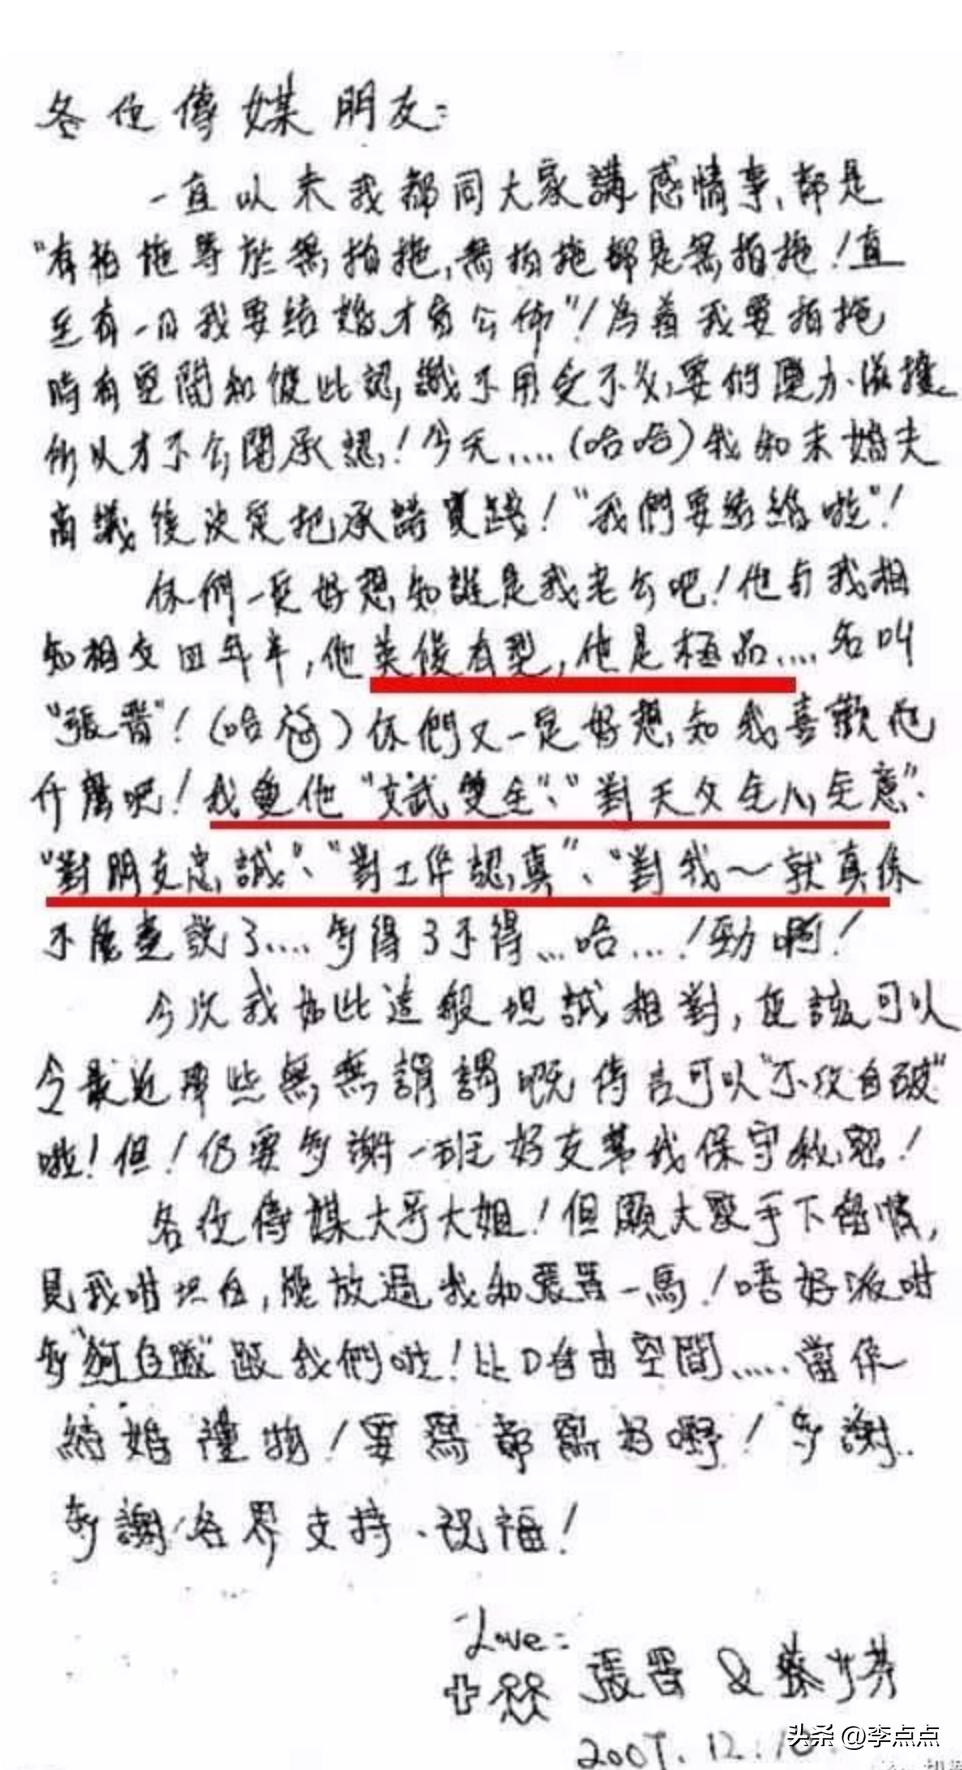 各位傳媒朋友:
一直以來我都同大家講感情事,都是
"有拍拖等於無拍拖,無拍拖都是無拍拖!直
至有一日我要結婚才會公佈"!為着我要拍拖
時有空間和彼此認識不用受不必要的壓力、滋擾
所以才不公開承認!今天....(哈哈)我和未婚夫
商議後決定把承諾實踐!"我們要結婚啦"!
你們一定好想知誰是我老公吧!他与我相
知相交四年半,他英俊有型,他是極品....名叫
"張晋"!(哈哈)你們又一定好想知我喜歡他
什麼吧!我愛他"文武雙全"、"對天父全心全意"、
"對朋友忠誠"、"對工作認真"、"對我~就真係
不能盡說了....多得了不得...哈...!勁啊!
今次我如此這般坦誠相對,應該可以
令最近那些無無謂謂嘅傳言可以"不攻自破"
啦!但!仍要多謝一班好友幫我保守秘密!
各位傳媒大哥大姐!但願大家手下留情,
見我咁坦白,能放過我和張晋一馬!唔好派咁
多"狗仔隊"跟我們啦!比D自由空間.....當係
結婚禮物!要寫都寫好嘢!多謝..
多謝各界支持、祝福!
Love:
張晋 & 蔡少芬
2007.12.10.
头条 @李点点